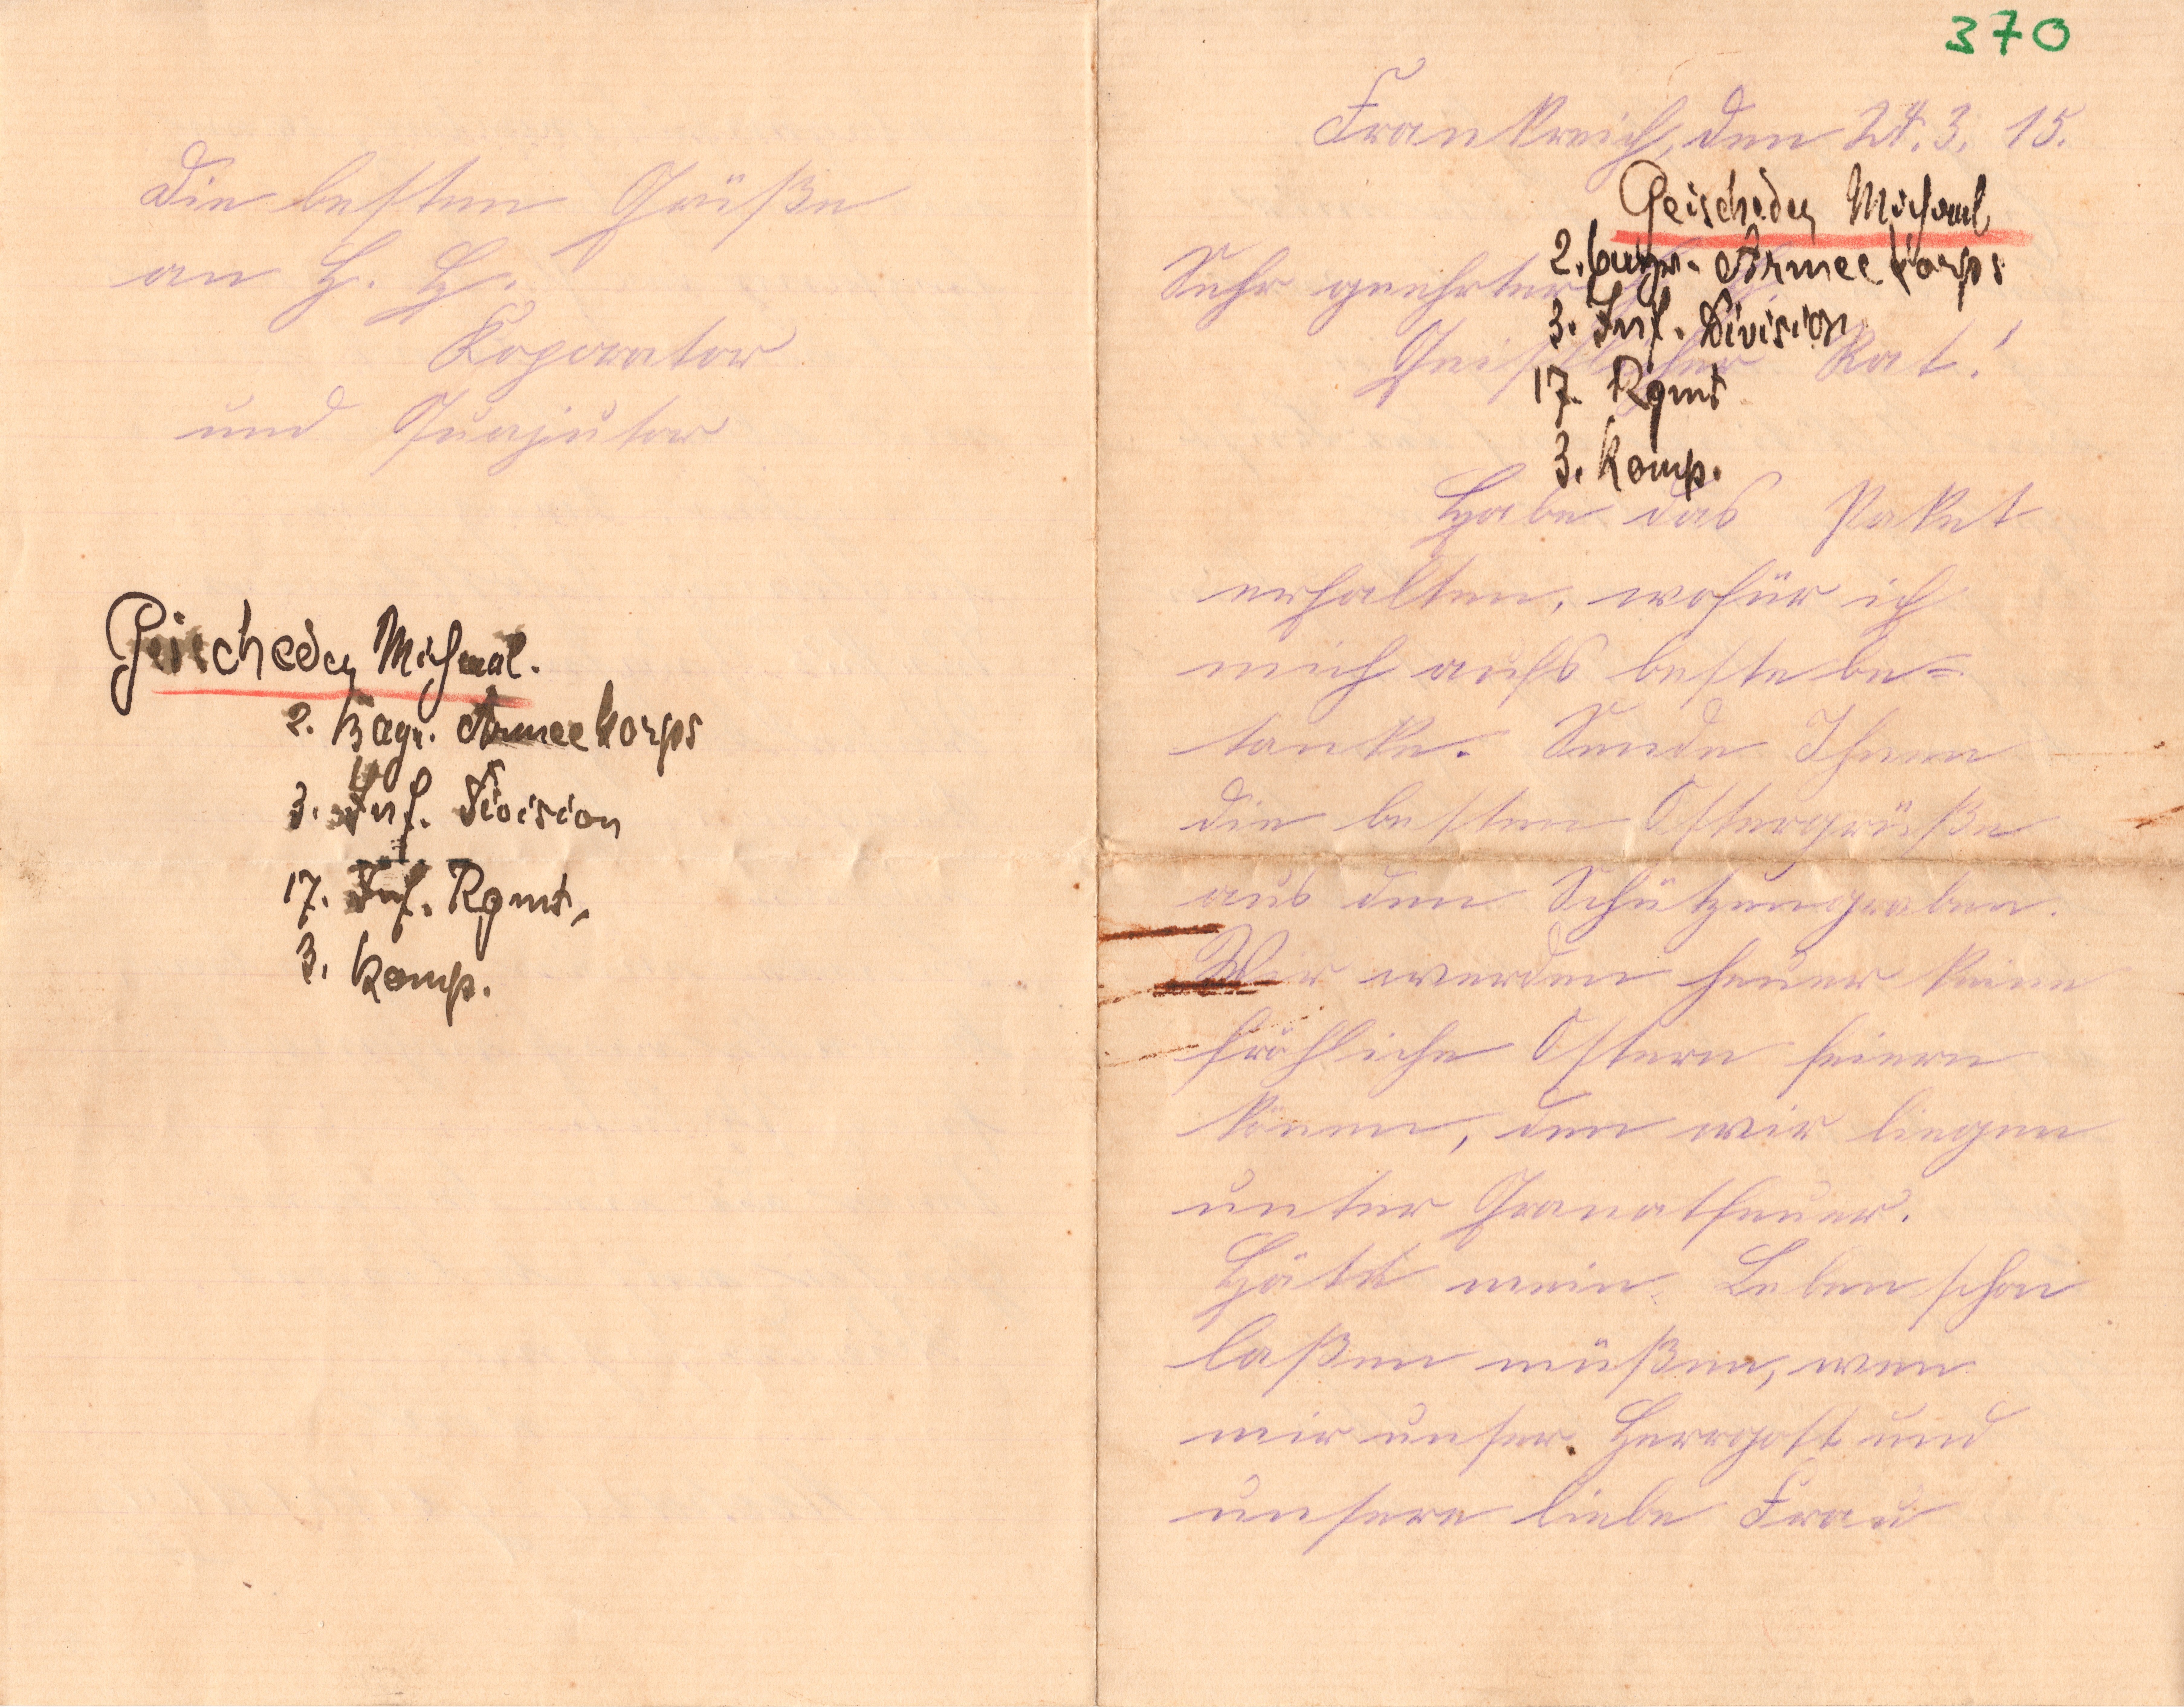 Die besten Grüße
an H. H.
Koporator
und Quajutor
Geischeder Michael.
2. Bayr. Armeekorps
3. Inf. Division
17. Inf. Rgmt.
3. Komp.
370
Frankreich, den 24. 3. 15.
Geischeder Michael
2. bayr. Armeekorps
Sehr geehrter
3. Inf. Division
Geistlicher Rat!
17. Rgmt
3. Komp.
Habe das Paket
erhalten, wofür ich
mich aufs beste be=
tanke. Sende Ihnen
die besten Ostergrüße
aus dem Schützengraben.
Wir werden heuer keine
fröhliche Ostern feiern
können, den wir liegen
unter Granatfeuer.
Hätte mein Leben schon
laßen müßen, wen
mir unser Herrgott und
unsere liebe Frau